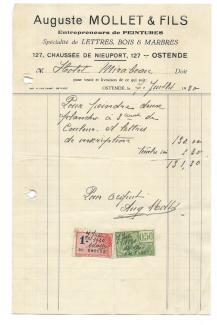 Auguste MOLLET & FILS
Entrepreneurs de PEINTURES
Spécialité de LETTRES, BOIS & MARBRES
127, CHAUSSÉE DE NIEUPORT, 127 — OSTENDE
Hôtel Mirabeau Doit
pour vente et livraison de ce qui suit
OSTENDE, Juillet
Pour peindre deux
planches à 2
couleurs et lettres
de inscriptions 130.00
Timbre
Pour acquit
Aug Mollet
1
0,50